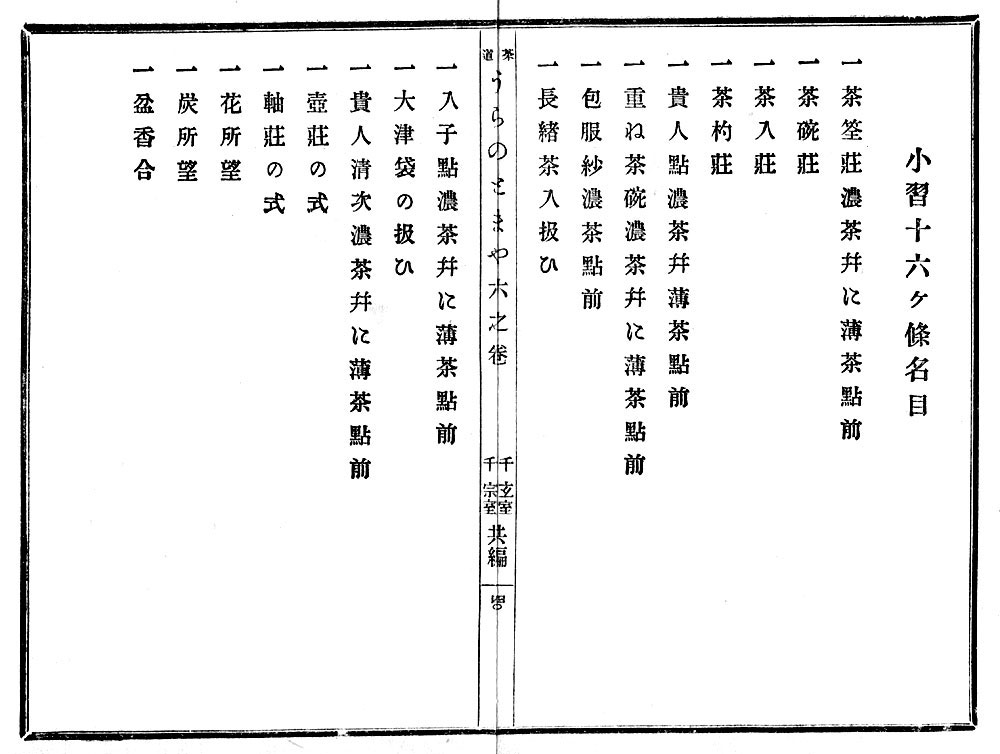 小習十六ヶ條名目
一茶筌莊濃茶幷に薄茶點前
一茶碗莊
一茶入莊
一茶杓莊
一貴人點濃茶幷薄茶點前
一重ね茶碗濃茶幷に薄茶點前
一包服紗濃茶點前
一長緖茶入扱ひ
茶道
うらのとまや六之卷
千玄室
千宗室
共編
一入子點濃茶幷に薄茶點前
一大津袋の扱ひ
一貴人淸次濃茶幷に薄茶點前
一壺莊の式
一軸莊の式
一花所望
一炭所望
一盆香合